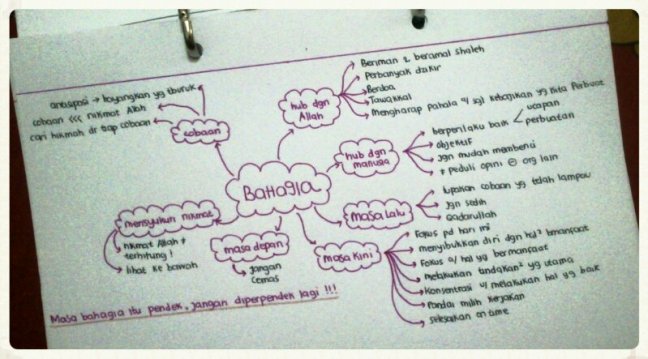 BAHAGIA
cobaan
antisipasi → bayangkan yg terburuk
cobaan <<< nikmat Allah
cari hikmah dr tiap cobaan
hub dgn
Allah
Beriman & beramal shaleh
Perbanyak dzikir
Berdoa
Tawakkal
Mengharap pahala u/ sgl kebajikan yg kita perbuat
hub dgn
manusia
berperilaku baik < ucapan
perbuatan
objektif
jgn mudah membenci
≠ peduli opini ⊖ org lain
masa lalu
lupakan cobaan yg telah lampau
jgn sedih
Qadarullah
masa kini
Fokus pd hari ini
menyibukkan diri dgn hal² bermanfaat
Fokus u/ hal yg bermanfaat
melakukan tindakan² yg utama
Konsentrasi u/ melakukan hal yg baik
Pandai milih kerjakan
selesaikan on time
masa depan
jangan
cemas
mensyukuri nikmat
nikmat Allah ≠
terhitung !
lihat ke bawah
Masa bahagia itu pendek, jangan diperpendek lagi !!!